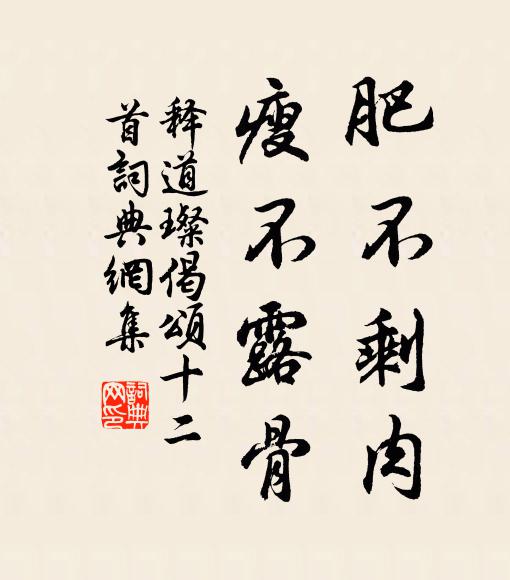 肥不剩肉
瘦不露骨
释道璨偈頌十二
首詞典網集
詞典
网印